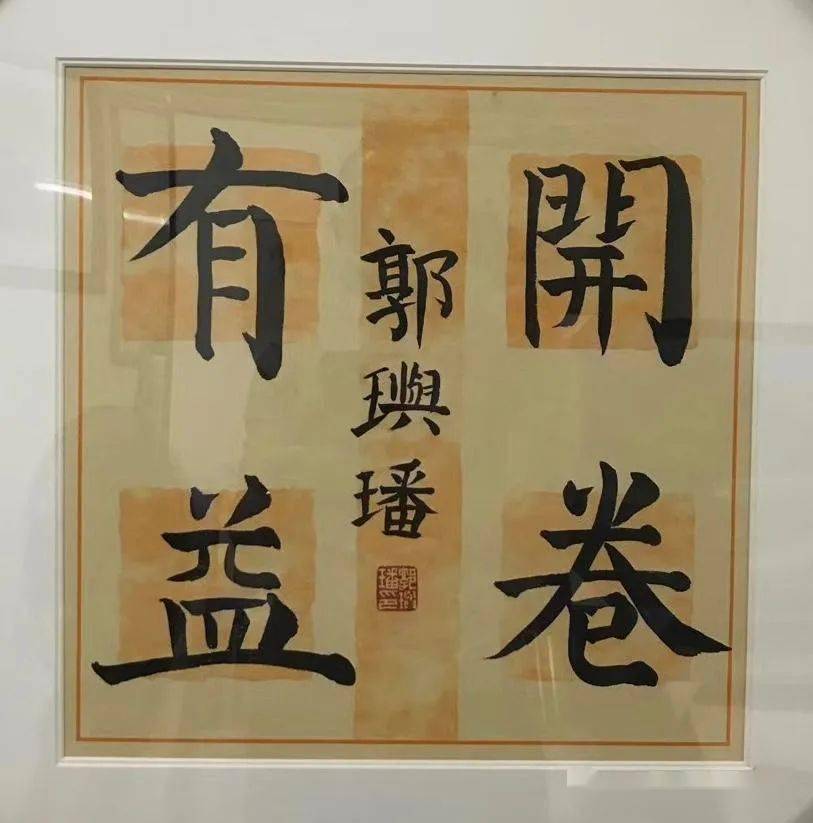 開卷
有益
郭璵璠